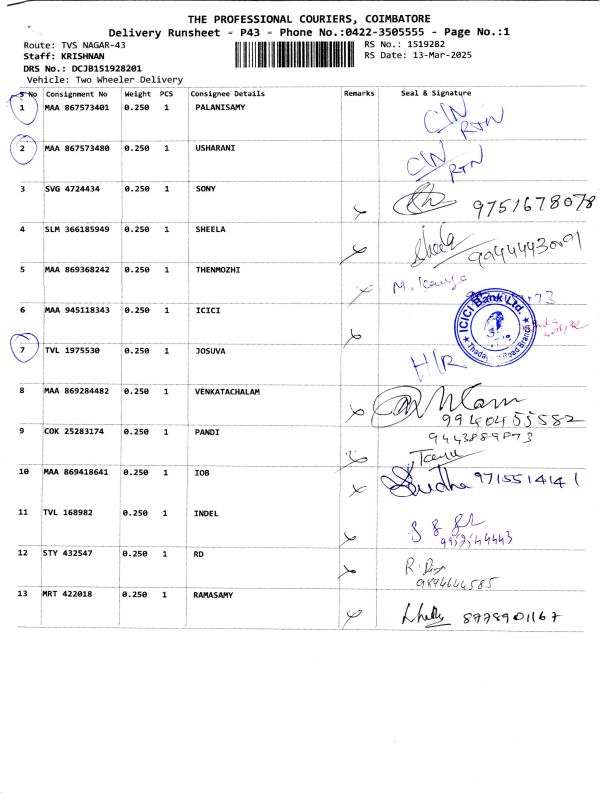 THE PROFESSIONAL COURIERS, COIMBATORE
Delivery Runsheet - P43 - Phone No.:0422-3505555 - Page No.:1
Route: TVS NAGAR-43 RS No.: 1519282
Staff: KRISHNAN RS Date: 13-Mar-2025
DRS No.: DCJB151928201
Vehicle: Two Wheeler Delivery
S No Consignment No Weight PCS Consignee Details Remarks Seal & Signature
1 MAA 867573401 0.250 1 PALANISAMY C/N RTN
2 MAA 867573480 0.250 1 USHARANI C/N RTN
3 SVG 4724434 0.250 1 SONY 9751678078
4 SLM 366185949 0.250 1 SHEELA Sheela
5 MAA 869368242 0.250 1 THENMOZHI
6 MAA 945118343 0.250 1 ICICI ICICI Bank Ltd.
7 TVL 1975530 0.250 1 JOSUVA
8 MAA 869284482 0.250 1 VENKATACHALAM
9 COK 25283174 0.250 1 PANDI
10 MAA 869418641 0.250 1 IOB Sudha 9715514141
11 TVL 168982 0.250 1 INDEL
12 STY 432547 0.250 1 RD
13 MRT 422018 0.250 1 RAMASAMY 8778901167